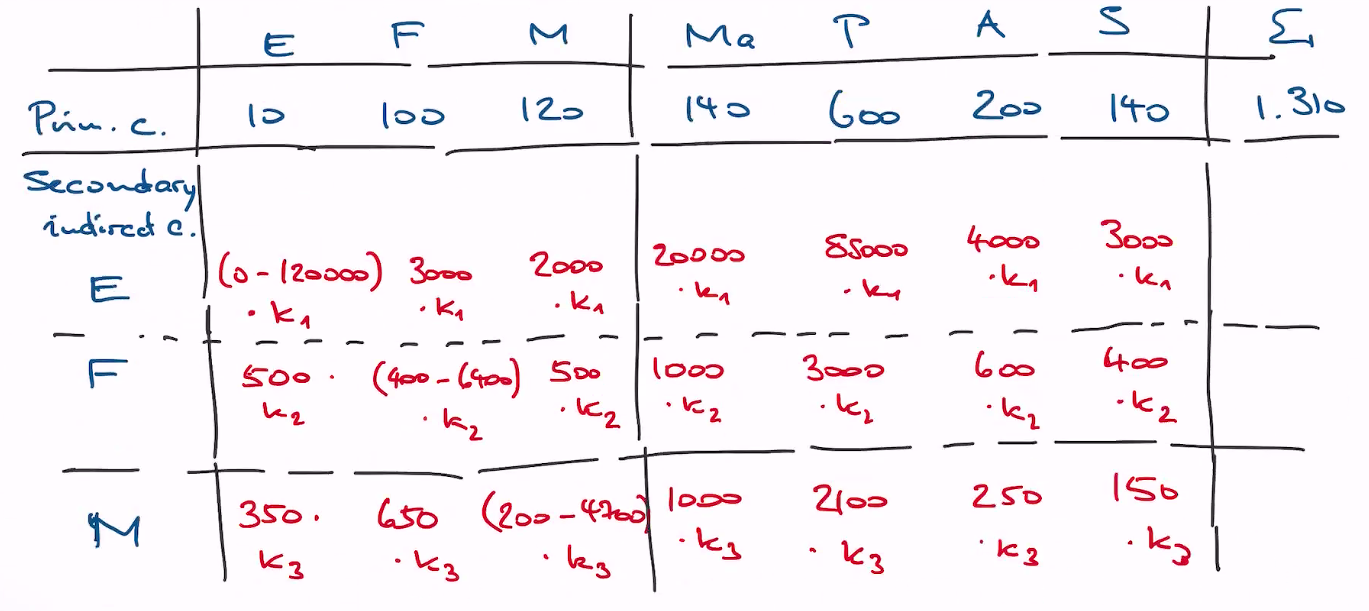 E F M Ma P A S Σ
Prim. c. 10 100 120 140 600 200 140 1.310
Secondary
indirect c.
E (0-120000) · k₁ 3000 · k₁ 2000 · k₁ 20000 · k₁ 85000 · k₁ 4000 · k₁ 3000 · k₁
F 500 · k₂ (400-6400) · k₂ 500 · k₂ 1000 · k₂ 3000 · k₂ 600 · k₂ 400 · k₂
M 350 · k₃ 650 · k₃ (200-4700) · k₃ 1000 · k₃ 2100 · k₃ 250 · k₃ 150 · k₃